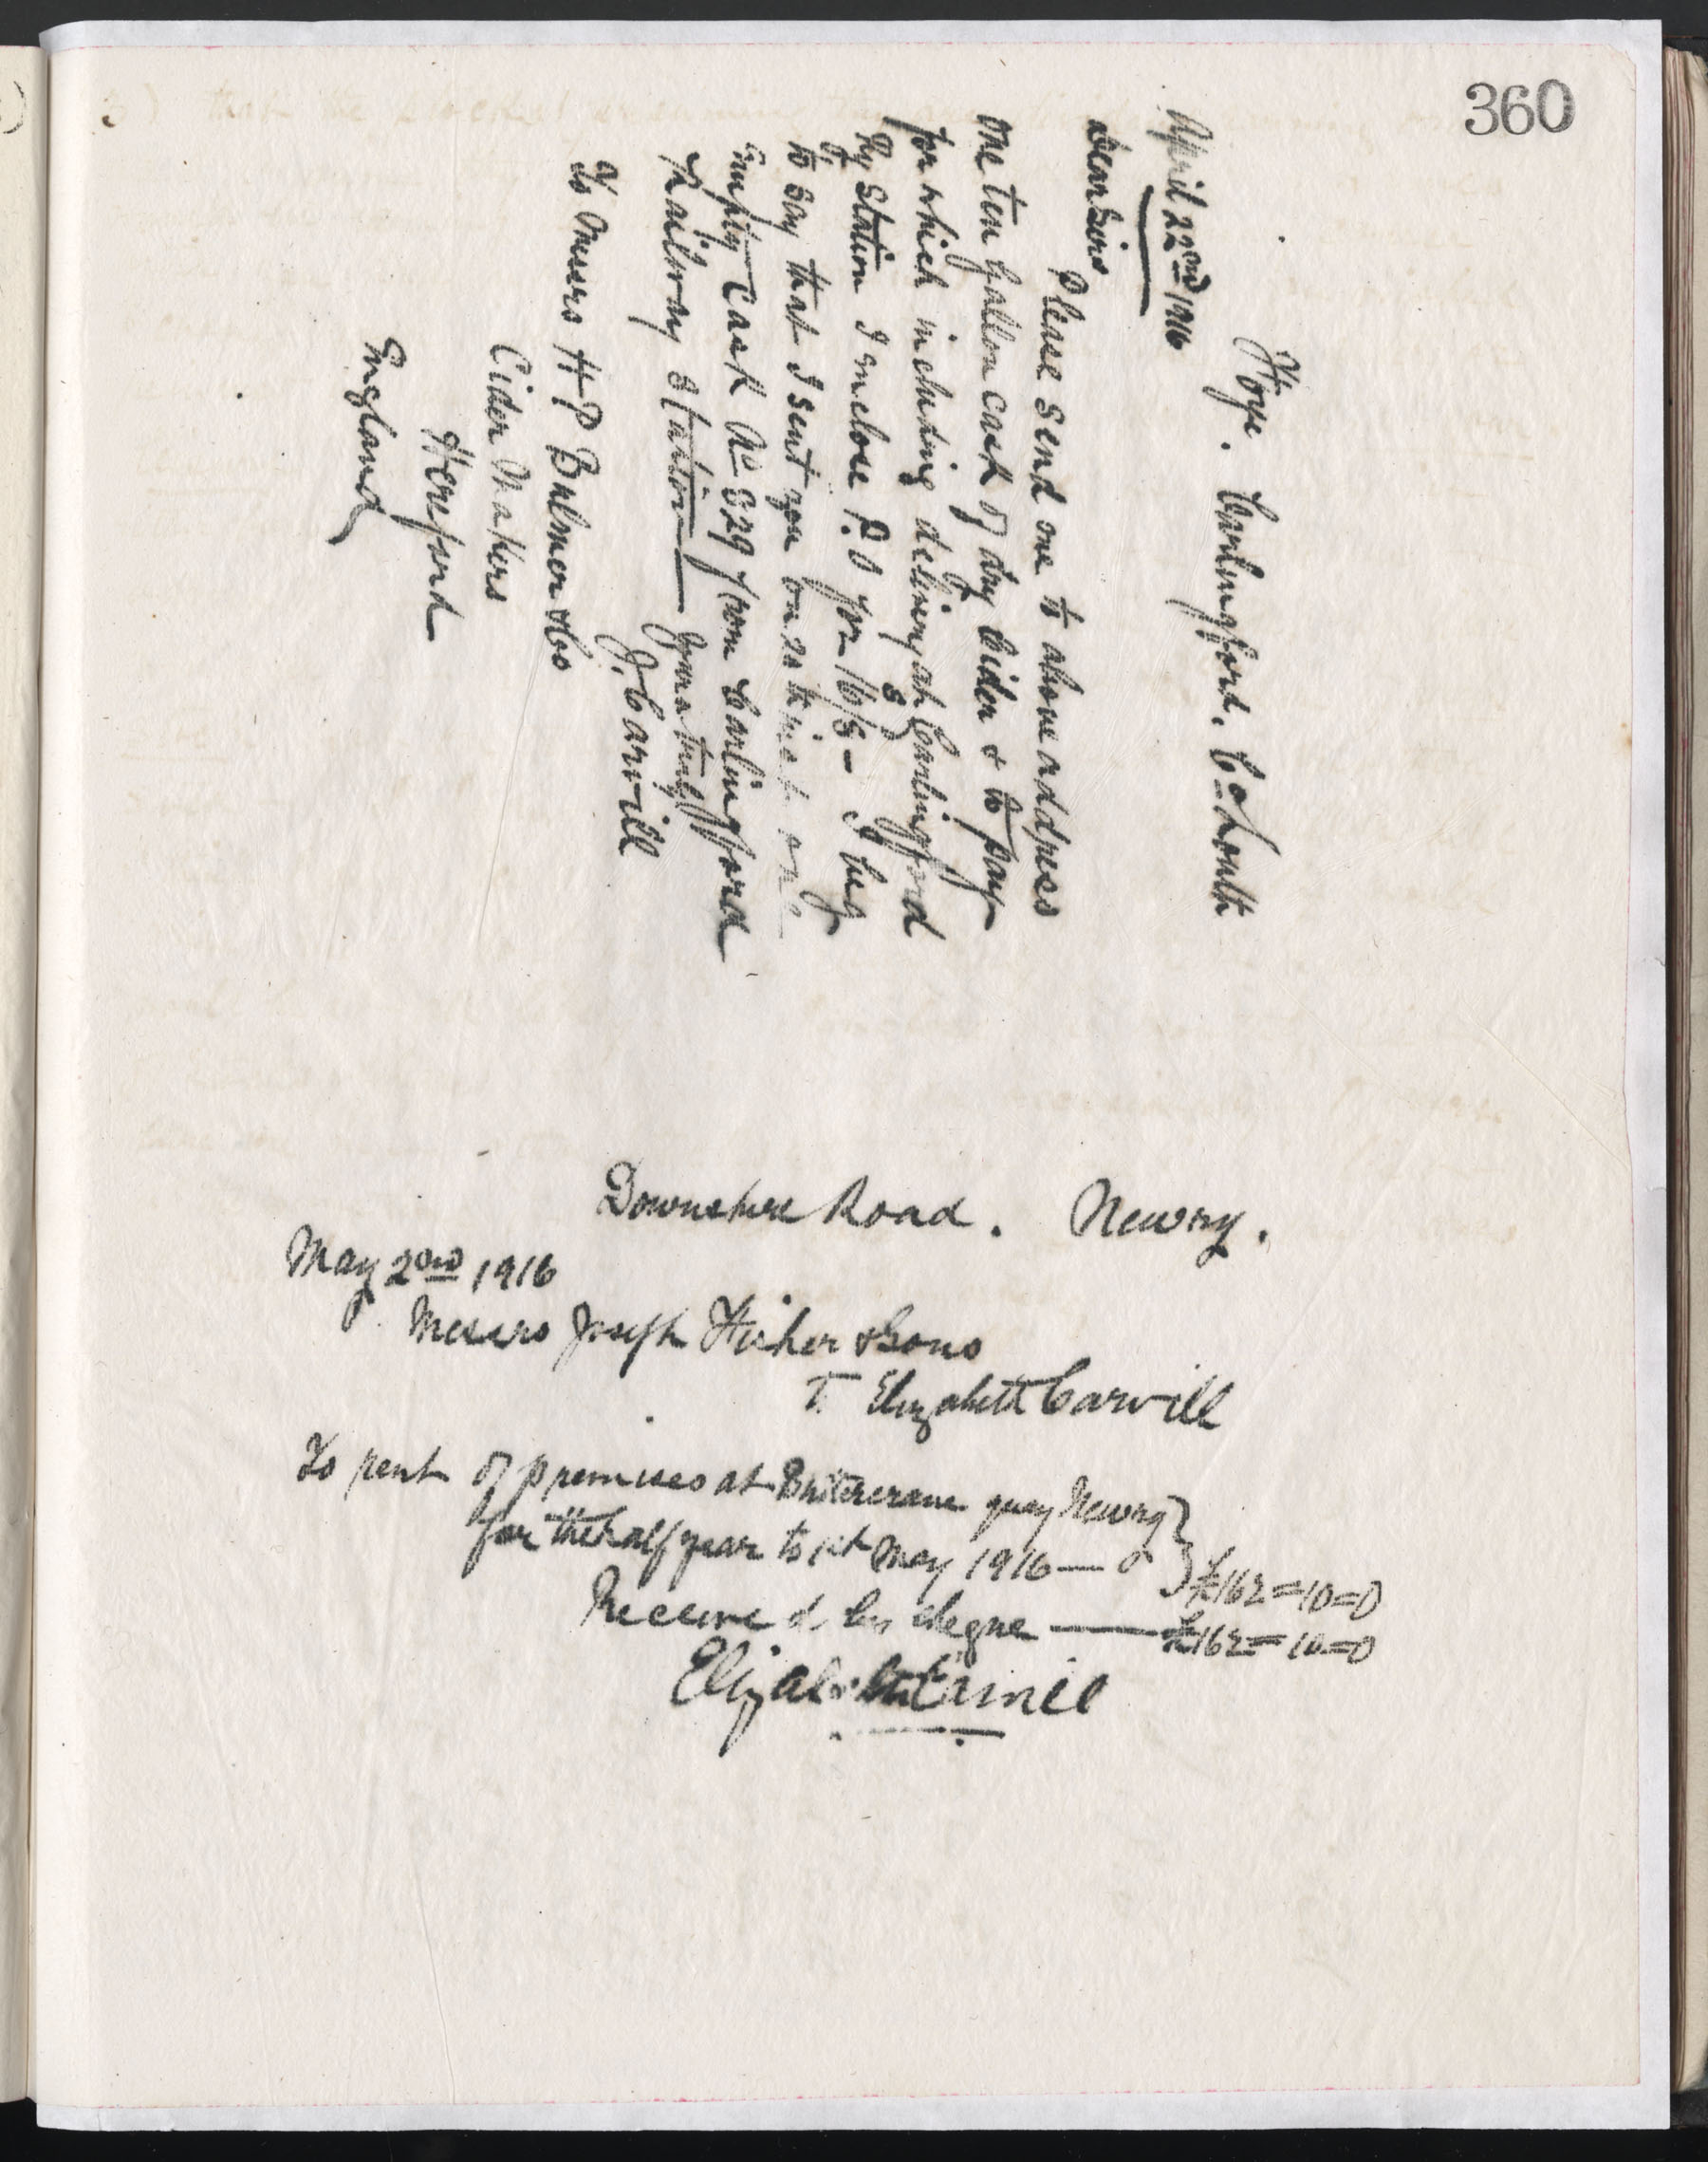 360
Hoye. Carlingford. Co Louth
April 22nd 1916
Dear Sirs
Please send me to above address
one ten gallon cask of dry Cider & to pay
for which including delivery at Carlingford
Ry Station I enclose P.O for 16/8 - I beg
to say that I sent you on 20th inst
Empty Cask No 329 from Carlingford
Railway Station Yours truly
J. Carvill
To Messrs H P Bulmer & Co
Cider Makers
Hereford
England
Downshire Road. Newry.
May 2nd 1916
Messrs Joseph Fisher & Sons
To Elizabeth Carvill
To rent of premises at Buttercrane quay Newry
for the half year to 1st May 1916 — £162=10=0
Received by cheque — £162=10=0
Elizabeth Carvill